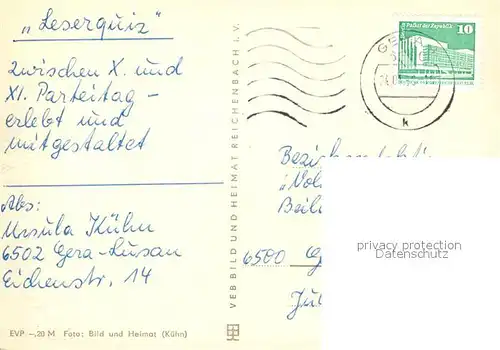 „Leserquiz"
zwischen X. und
XI. Parteitag –
erlebt und
mitgestaltet
Abs:
Ursula Kühn
6502 Gera-Lusan
Eichenstr. 14
EVP –,20 M Foto: Bild und Heimat (Kühn)
VEB BILD UND HEIMAT REICHENBACH i. V.
Palast der Republik
10
k
6500
privacy protection
Datenschutz